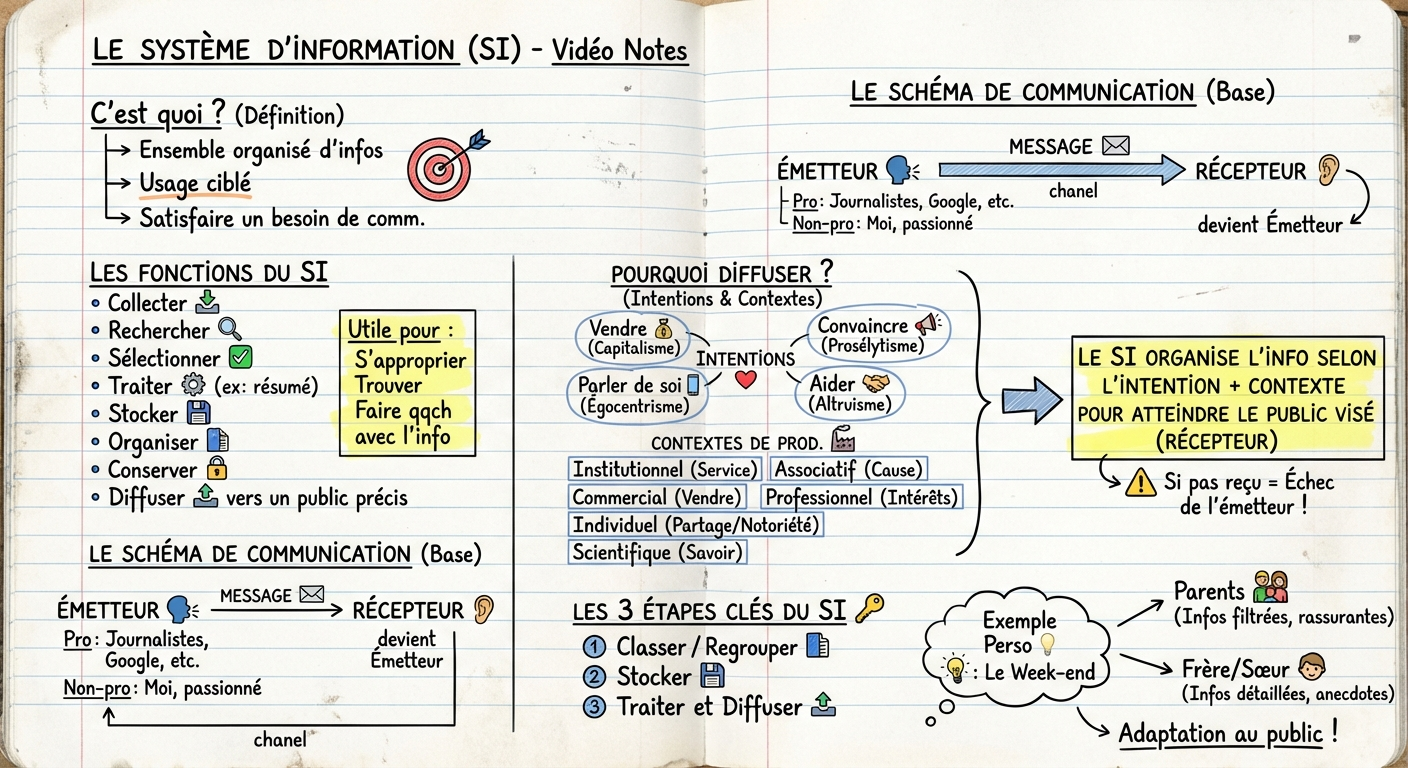 LE SYSTÈME D'INFORMATION (SI) - Vidéo Notes
C'est quoi ? (Définition)
Ensemble organisé d'infos
Usage ciblé
Satisfaire un besoin de comm.
LES FONCTIONS DU SI
• Collecter
• Rechercher
• Sélectionner
• Traiter (ex: résumé)
• Stocker
• Organiser
• Conserver
• Diffuser vers un public précis
Utile pour :
S'approprier
Trouver
Faire qqch
avec l'info
LE SCHÉMA DE COMMUNICATION (Base)
ÉMETTEUR MESSAGE RÉCEPTEUR
Pro : Journalistes,
Google, etc.
Non-pro : Moi, passionné
devient
Émetteur
chanel
LE SCHÉMA DE COMMUNICATION (Base)
MESSAGE
ÉMETTEUR RÉCEPTEUR
chanel
Pro : Journalistes, Google, etc.
Non-pro : Moi, passionné
devient Émetteur
POURQUOI DIFFUSER ?
(Intentions & Contextes)
Vendre
(Capitalisme)
Convaincre
(Prosélytisme)
INTENTIONS
Parler de soi
(Égocentrisme)
Aider
(Altruisme)
CONTEXTES DE PROD.
Institutionnel (Service) Associatif (Cause)
Commercial (Vendre) Professionnel (Intérêts)
Individuel (Partage/Notoriété)
Scientifique (Savoir)
LE SI ORGANISE L'INFO SELON
L'INTENTION + CONTEXTE
POUR ATTEINDRE LE PUBLIC VISÉ
(RÉCEPTEUR)
Si pas reçu = Échec
de l'émetteur !
LES 3 ÉTAPES CLÉS DU SI
1 Classer / Regrouper
2 Stocker
3 Traiter et Diffuser
Exemple
Perso
: Le Week-end
Parents
(Infos filtrées, rassurantes)
Frère/Sœur
(Infos détaillées, anecdotes)
Adaptation au public !